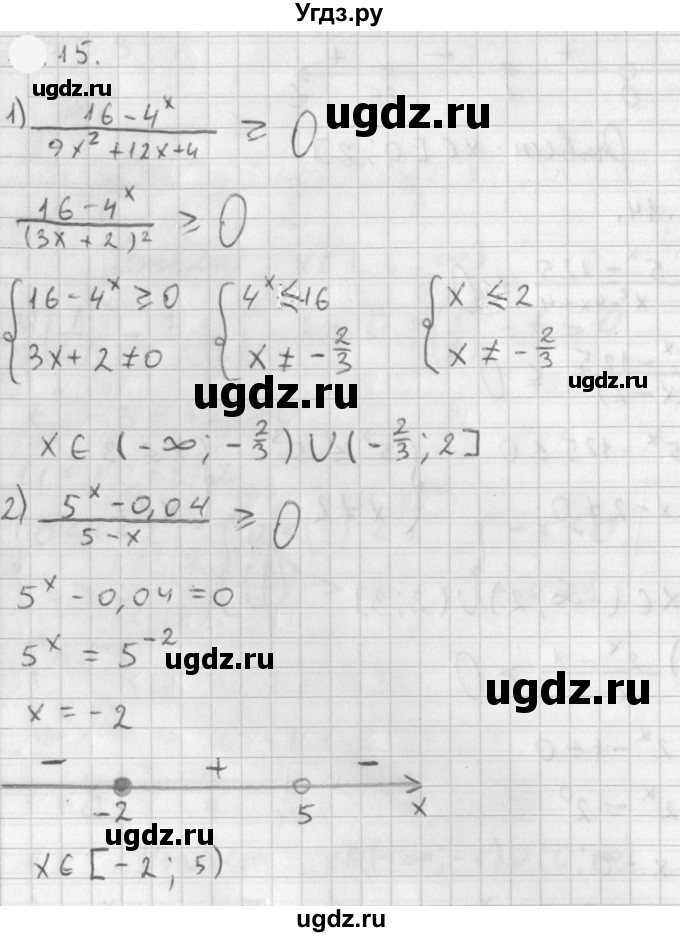 Угдз.ру
.15.
ugdz.ru
1) (16-4^x)/(9x²+12x+4) ≥ 0
ugdz.ru
(16-4^x)/(3x+2)² ≥ 0
{16-4^x ≥ 0 {4^x ≤ 16 {x ≤ 2
3x+2≠0 x ≠ -2/3 x ≠ -2/3
ugdz.ru
ugdz.ru
x ∈ (-∞; -2/3) ∪ (-2/3; 2]
2) (5^x-0,04)/(5-x) ≥ 0
ugdz.ru
5^x - 0,04 = 0
5^x = 5^-2
ugdz.ru
ugdz.ru
x = -2
- + -
-2 5 x
ugdz.ru
x ∈ [-2; 5)
ugdz.ru